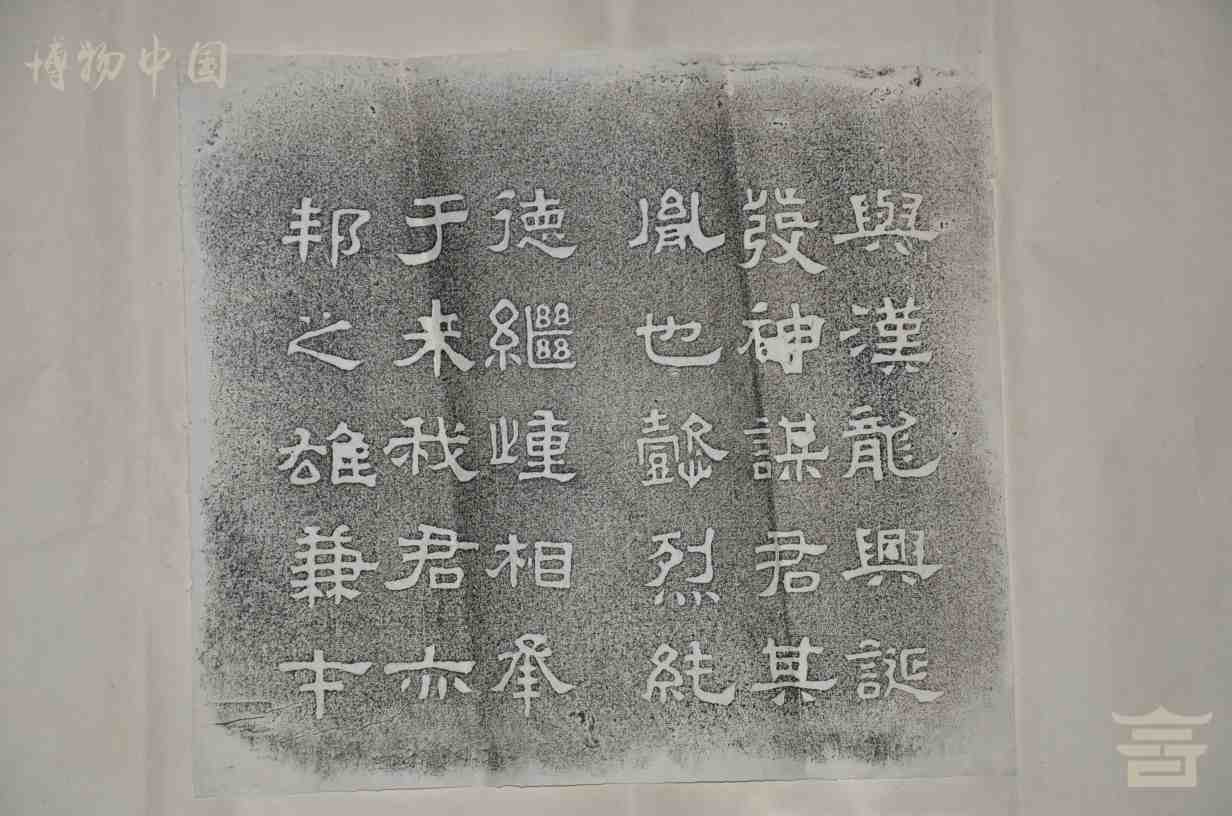 博物中国
與漢龍興誕
發神謀君其
胤也懿烈純
德繼歱相承
于来我君亦
邦之雄兼才